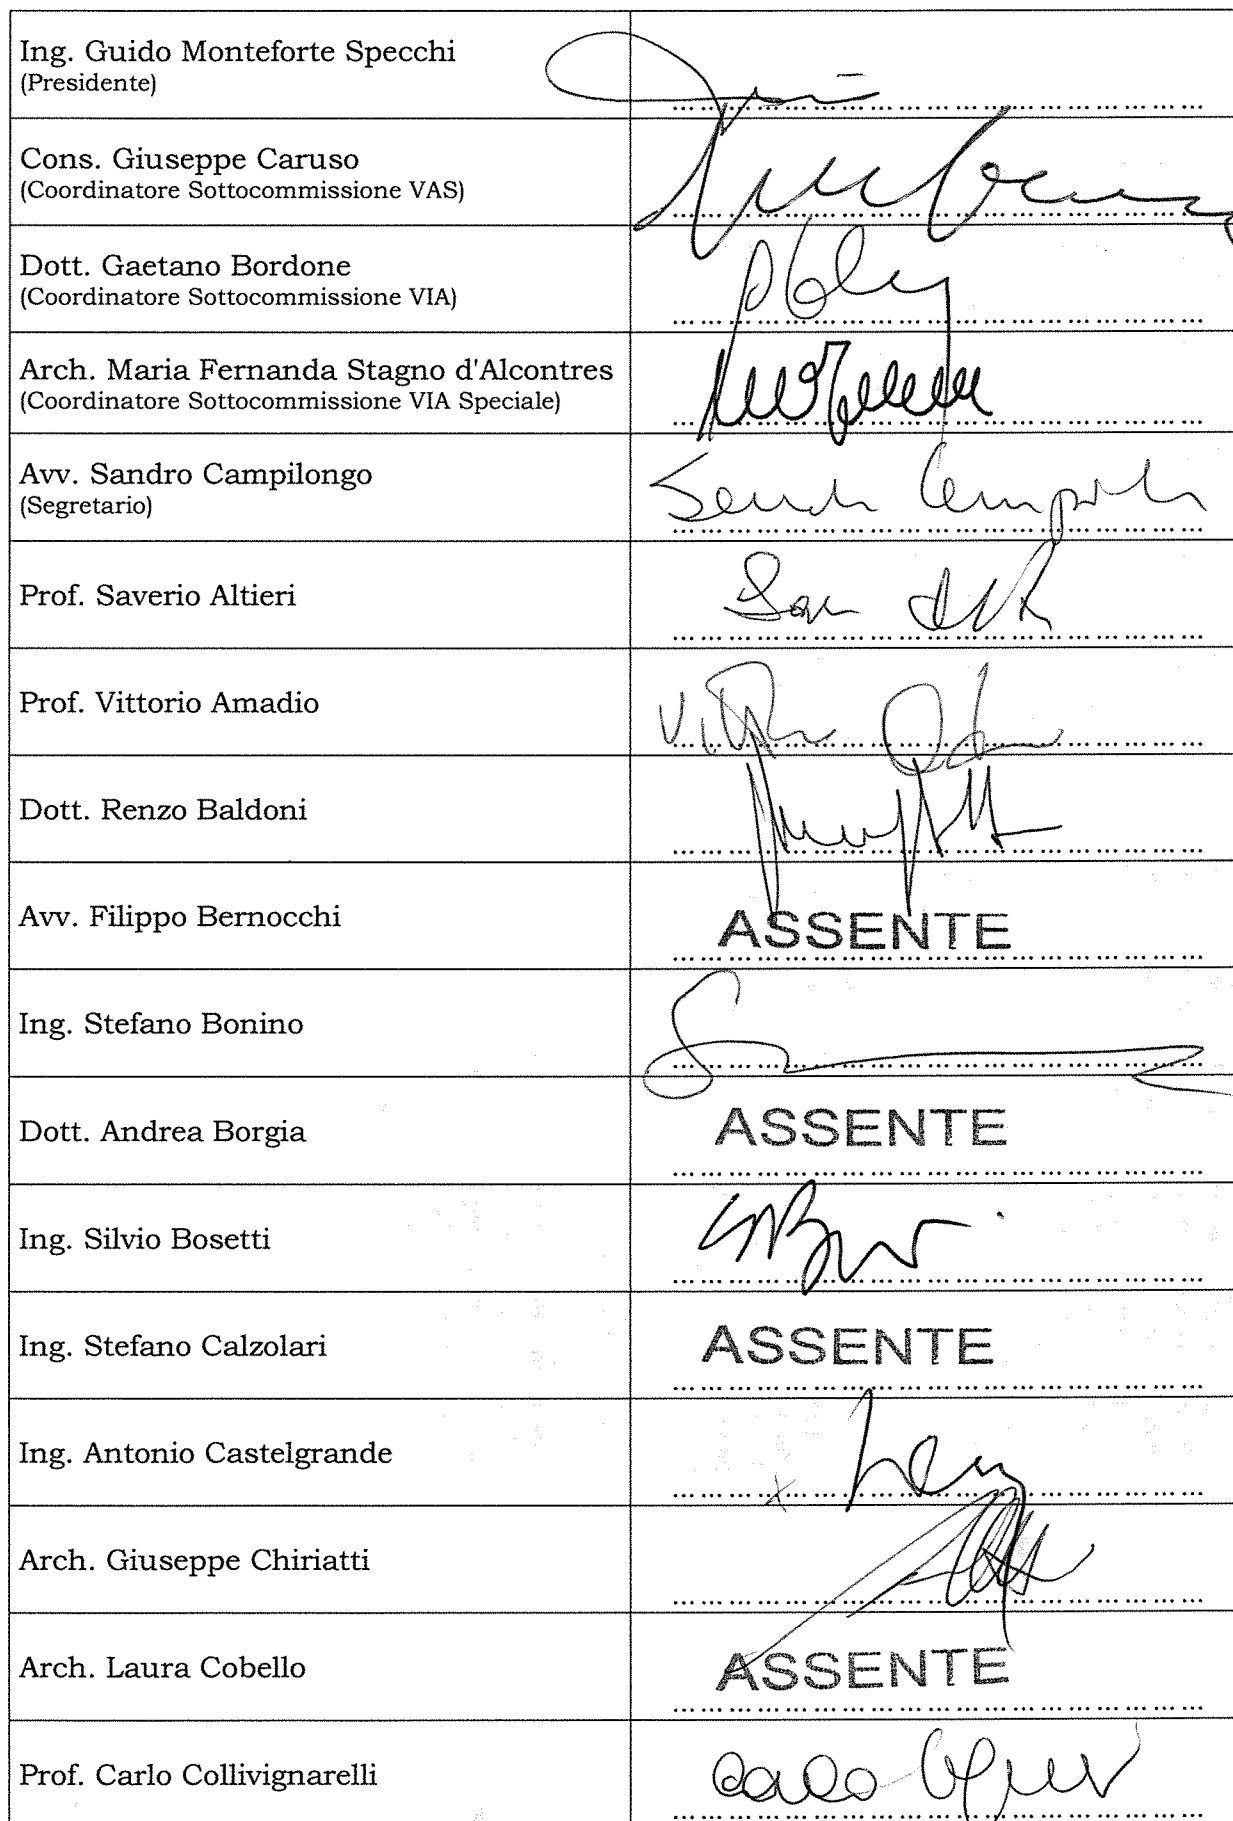 Ing. Guido Monteforte Specchi
(Presidente)
Cons. Giuseppe Caruso
(Coordinatore Sottocommissione VAS)
Dott. Gaetano Bordone
(Coordinatore Sottocommissione VIA)
Arch. Maria Fernanda Stagno d'Alcontres
(Coordinatore Sottocommissione VIA Speciale)
Avv. Sandro Campilongo
(Segretario)
Prof. Saverio Altieri
Prof. Vittorio Amadio
Dott. Renzo Baldoni
Avv. Filippo Bernocchi
ASSENTE
Ing. Stefano Bonino
Dott. Andrea Borgia
ASSENTE
Ing. Silvio Bosetti
Ing. Stefano Calzolari
ASSENTE
Ing. Antonio Castelgrande
Arch. Giuseppe Chiriatti
Arch. Laura Cobello
ASSENTE
Prof. Carlo Collivignarelli